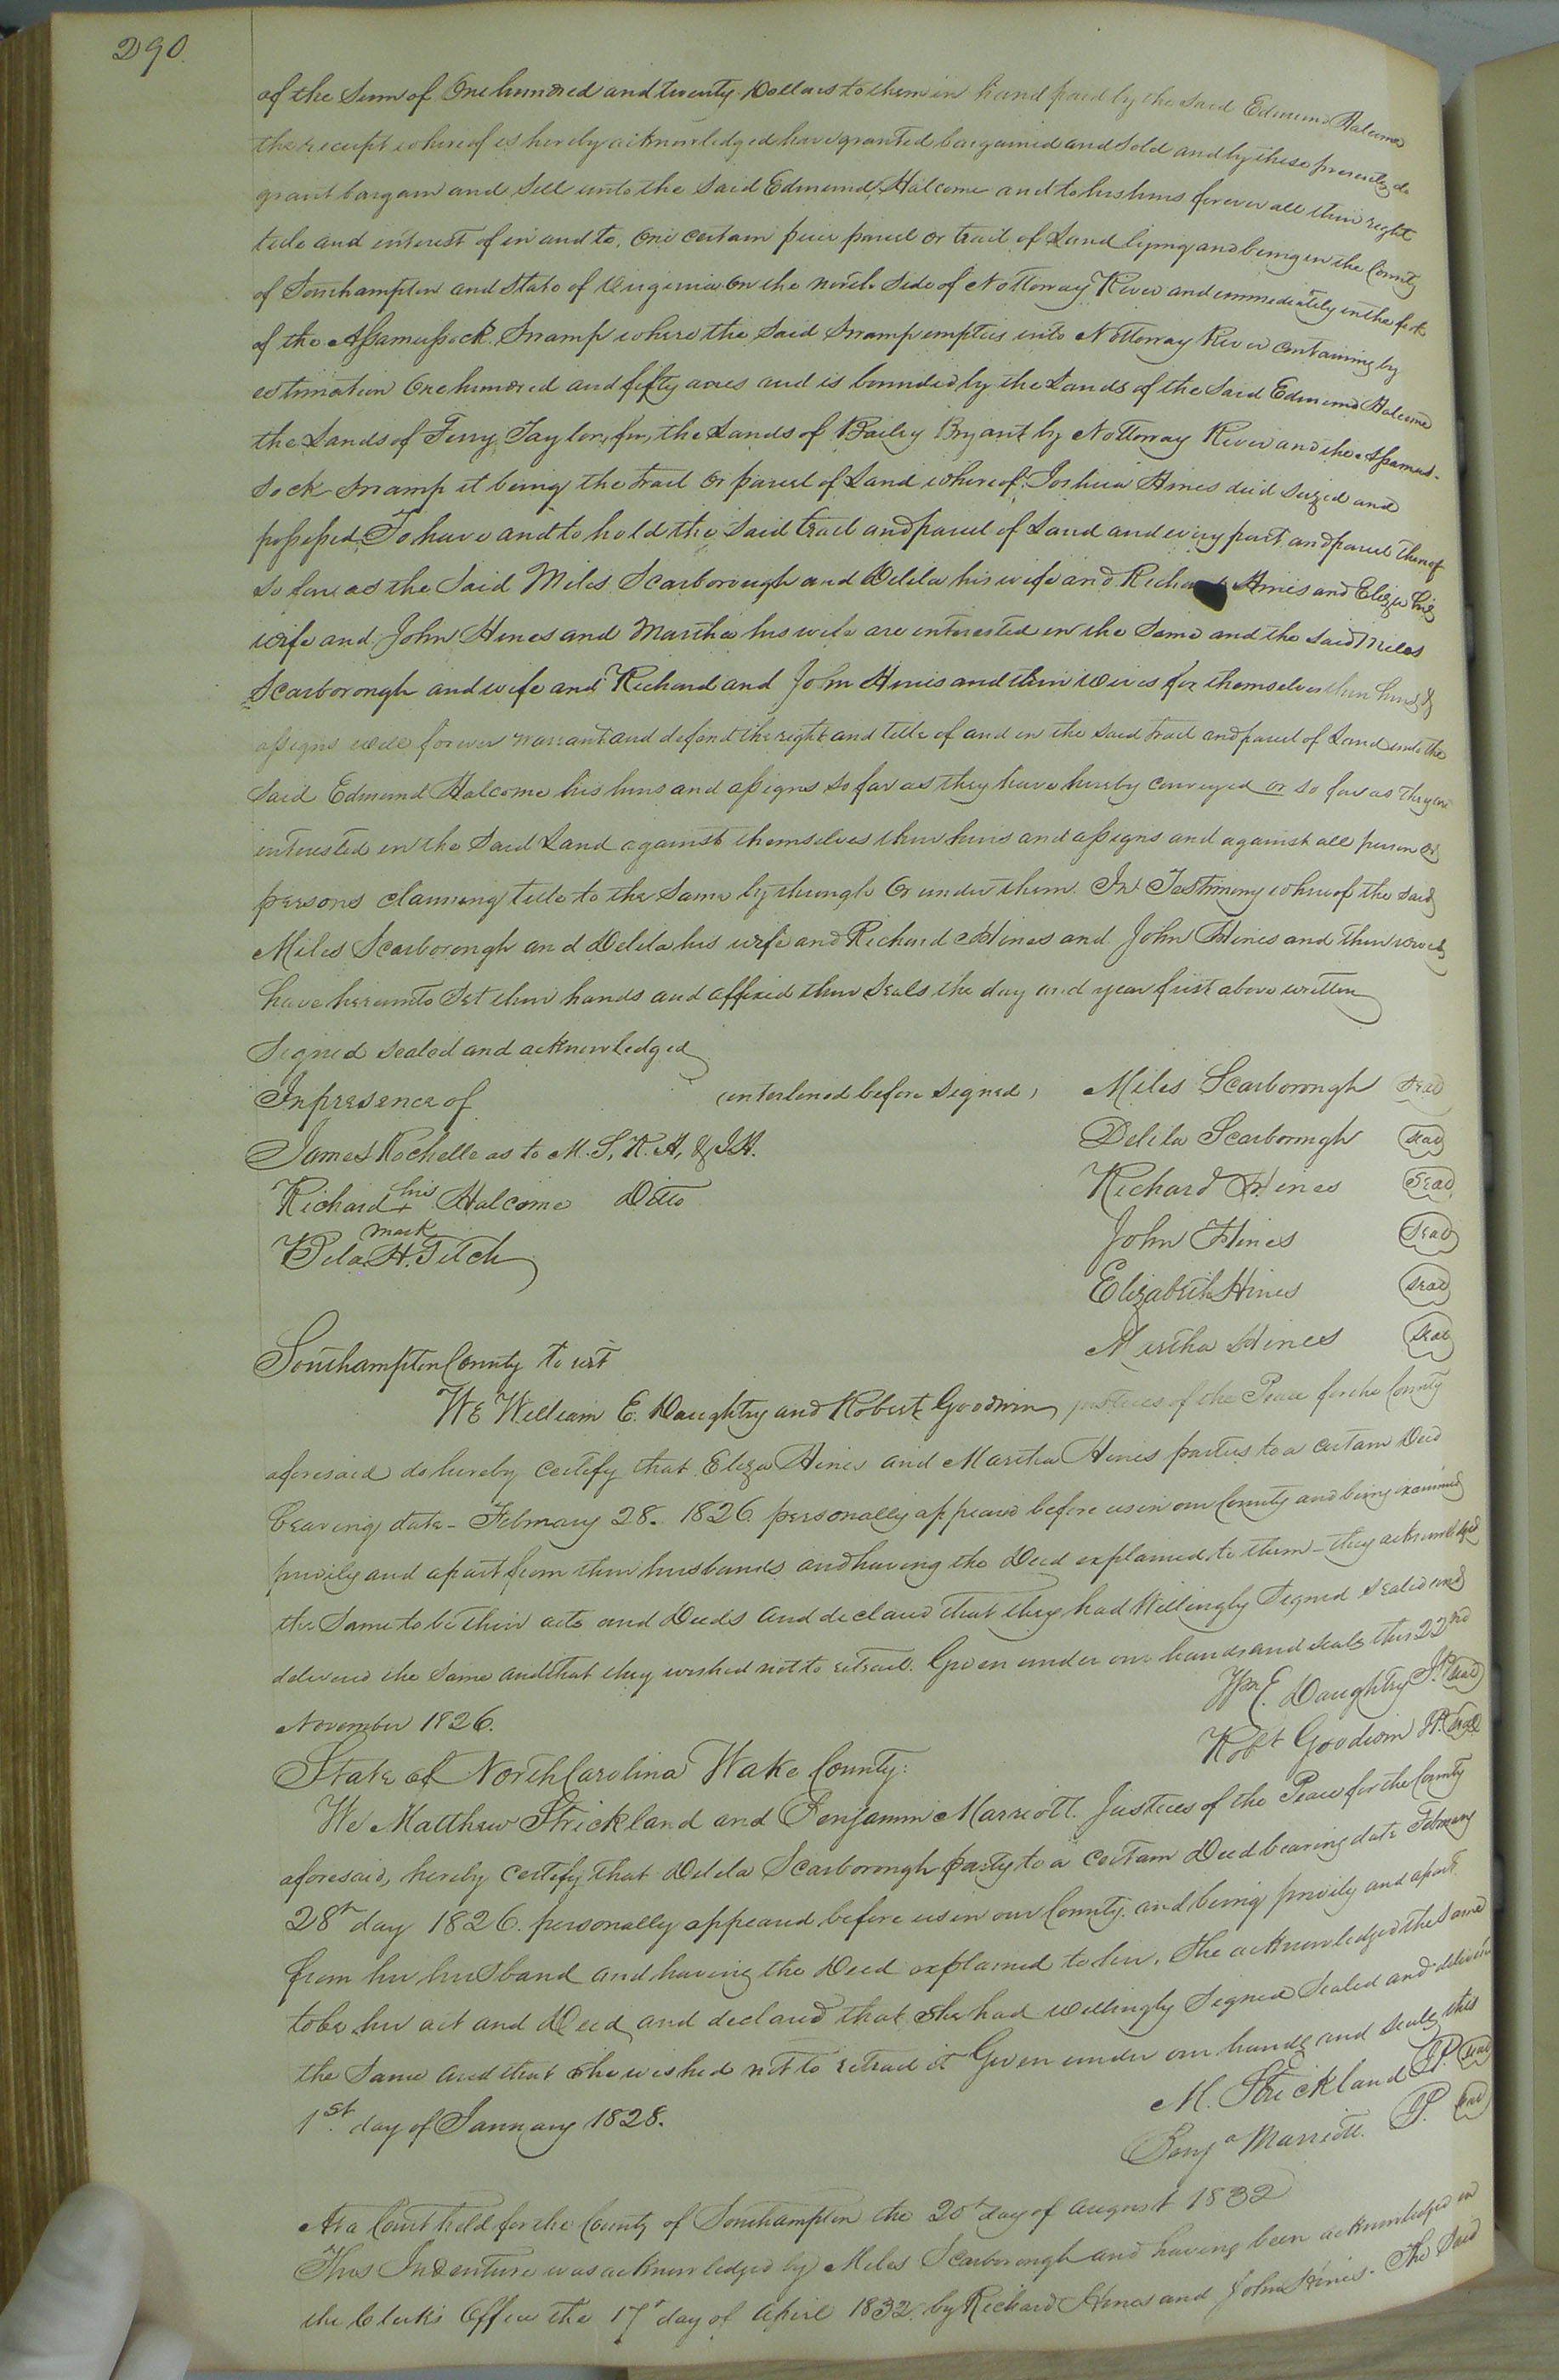 290.
of the Sum of One hundred and twenty Dollars to them in hand paid by the said Edmund Halcome
the receipt whereof is hereby acknowledged have granted bargained and Sold and by these presents do
grant bargain and Sell unto the Said Edmund Halcome and to his heirs forever all their right
title and interest of in and to, One certain piece parcel or tract of Land lying and being in the County
of Southampton and State of Virginia On the north Side of Nottoway River and immediately in the fork
of the Assamussock Swamp where the Said Swamp empties into Nottoway River Containing by
estimation One hundred and fifty acres and is bounded by the Lands of the Said Edmund Halcome
the Lands of Ferry Taylor, the Lands of Bailey Bryant by Nottoway River and the Assamus-
sock Swamp it being the tract or parcel of Land whereof Joshua Hines died Seized and
possessed, To have and to hold the Said tract and parcel of Land and every part and parcel thereof
so far as the Said Miles Scarborough and Delila his wife and Richard Hines and Eliza his
wife and John Hines and Martha his wife are interested in the Same and the said Miles
Scarborough and wife and Richard and John Hines and their wives for themselves their heirs &
assigns will forever warrant and defend the right and title of and in the said tract and parcel of Land unto the
Said Edmund Halcome his heirs and assigns so far as they have hereby conveyed or so far as they are
interested in the Said Land against themselves their heirs and assigns and against all person or
persons claiming title to the Same by through Or under them. In Testimony whereof the said
Miles Scarborough and Delila his wife and Richard Hines and John Hines and their wives
have hereunto Set their hands and affixed their Seals the day and year first above written
Signed sealed and acknowledged
In presence of (interlined before signed) Miles Scarborough Seal
James Rochelle as to M. S, R. H, & J H. Delila Scarborough Seal
Richard his + mark Halcome Ditto Richard Hines Seal
Bela H. Titch John Hines Seal
Elizabeth Hines Seal
Martha Hines Seal
Southampton County to wit
We William E. Daughtry and Robert Goodwin justices of the Peace for the County
aforesaid do hereby certify that Eliza Hines and Martha Hines parties to a certain Deed
bearing date - February 28. 1826. personally appeared before us in our County and being examined
privily and apart from their husbands and having the Deed explained to them - they acknowledged
the Same to be their acts and Deeds and declared that they had Willingly Signed sealed and
delivered the Same and that they wished not to retract. Given under our hands and seals this 22nd
November 1826. Wm E. Daughtry J.P. Seal
Robt Goodwin J.P. Seal
State of North Carolina Wake County:
We Matthew Strickland and Benjamin Marriott. Justices of the Peace for the County
aforesaid, hereby certify that Delila Scarborough party to a certain Deed bearing date February
28th day 1826. personally appeared before us in our County. and being privily and apart
from her husband and having the Deed explained to her, She acknowledged the Same
to be her act and Deed and declared that She had willingly Signed Sealed and delivered
the Same and that she wished not to retract it Given under our hands and seals this
1st. day of January 1828. M. Strickland J.P. Seal
Benja Marriott. J.P. Seal
At a Court held for the County of Southampton the 20th day of August 1832
This Indenture was acknowledged by Miles Scarborough and having been acknowledged in
the Clerk's Office the 17th day of April 1832. by Richard Hines and John Hines. The Said